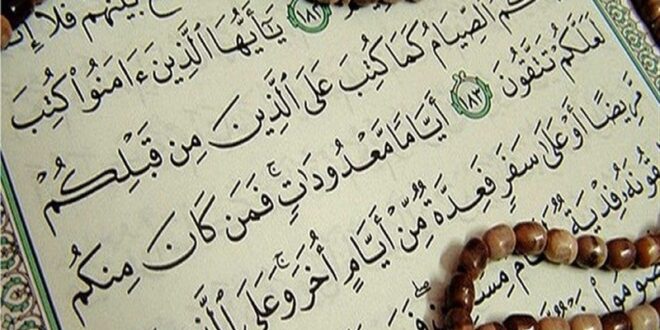 بَيْنَهُمْ فَلَا
١٨٢ يَٰٓأَيُّهَا ٱلَّذِينَ ءَامَنُوا۟ كُتِبَ
ٱلصِّيَامُ كَمَا كُتِبَ عَلَى ٱلَّذِينَ مِن قَبْلِكُمْ
لَعَلَّكُمْ تَتَّقُونَ ١٨٣ أَيَّامًا مَّعْدُودَٰتٍ ۚ فَمَن كَانَ مِنكُم
مَّرِيضًا أَوْ عَلَىٰ سَفَرٍ فَعِدَّةٌ مِّنْ أَيَّامٍ أُخَرَ ۚ وَعَلَى
فِدْيَةٌ